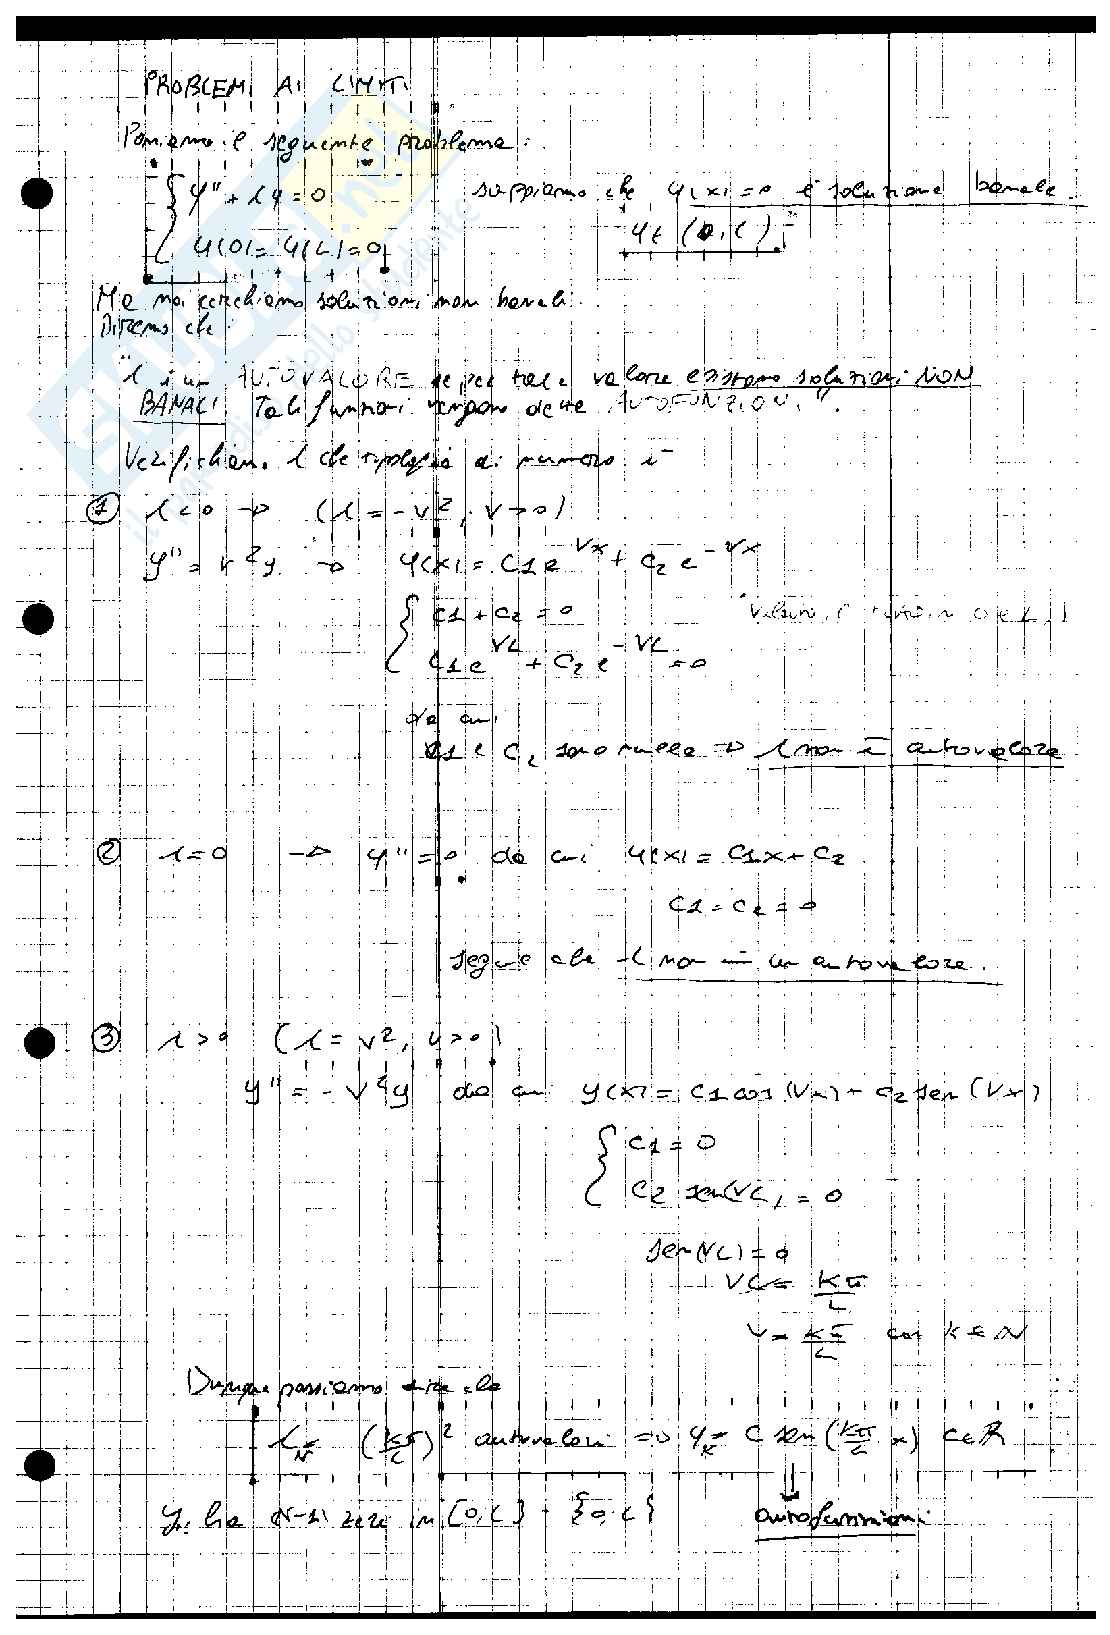 PROBLEMI AI LIMITI
Poniamo il seguente problema:
{ y'' + λy = 0
sappiamo che y(x) = 0 è soluzione banale
{ y(0) = y(L) = 0
y ∈ (0, L)
Ma noi cerchiamo soluzioni non banali.
Diremo che:
"λ è un AUTOVALORE se per tale valore esistono soluzioni NON
BANALI. Tali funzioni vengono dette AUTOFUNZIONI".
Verifichiamo λ che tipologia di numero è
① λ < 0 → (λ = -v², v > 0)
y'' = v²y → y(x) = C1 e^vx + C2 e^-vx
{ C1 + C2 = 0
{ C1 e^vL + C2 e^-vL = 0
da cui
C1 e C2 sono nulle → λ non è autovalore
② λ = 0 → y'' = 0 da cui y(x) = C1x + C2
C1 = C2 = 0
segue che λ non è un autovalore.
③ λ > 0 (λ = v², v > 0)
y'' = -v²y da cui y(x) = C1 cos(vx) + C2 sen(vx)
{ C1 = 0
{ C2 sen(vL) = 0
sen(vL) = 0
vL = kπ/L
v = kπ/L con k ∈ N
Dunque possiamo dire che
λN = (kπ/L)² autovalori => yk = C sen(kπ/L x) C ∈ R
ha (N-1) zeri in [0, L] - {0, L}
autofunzioni